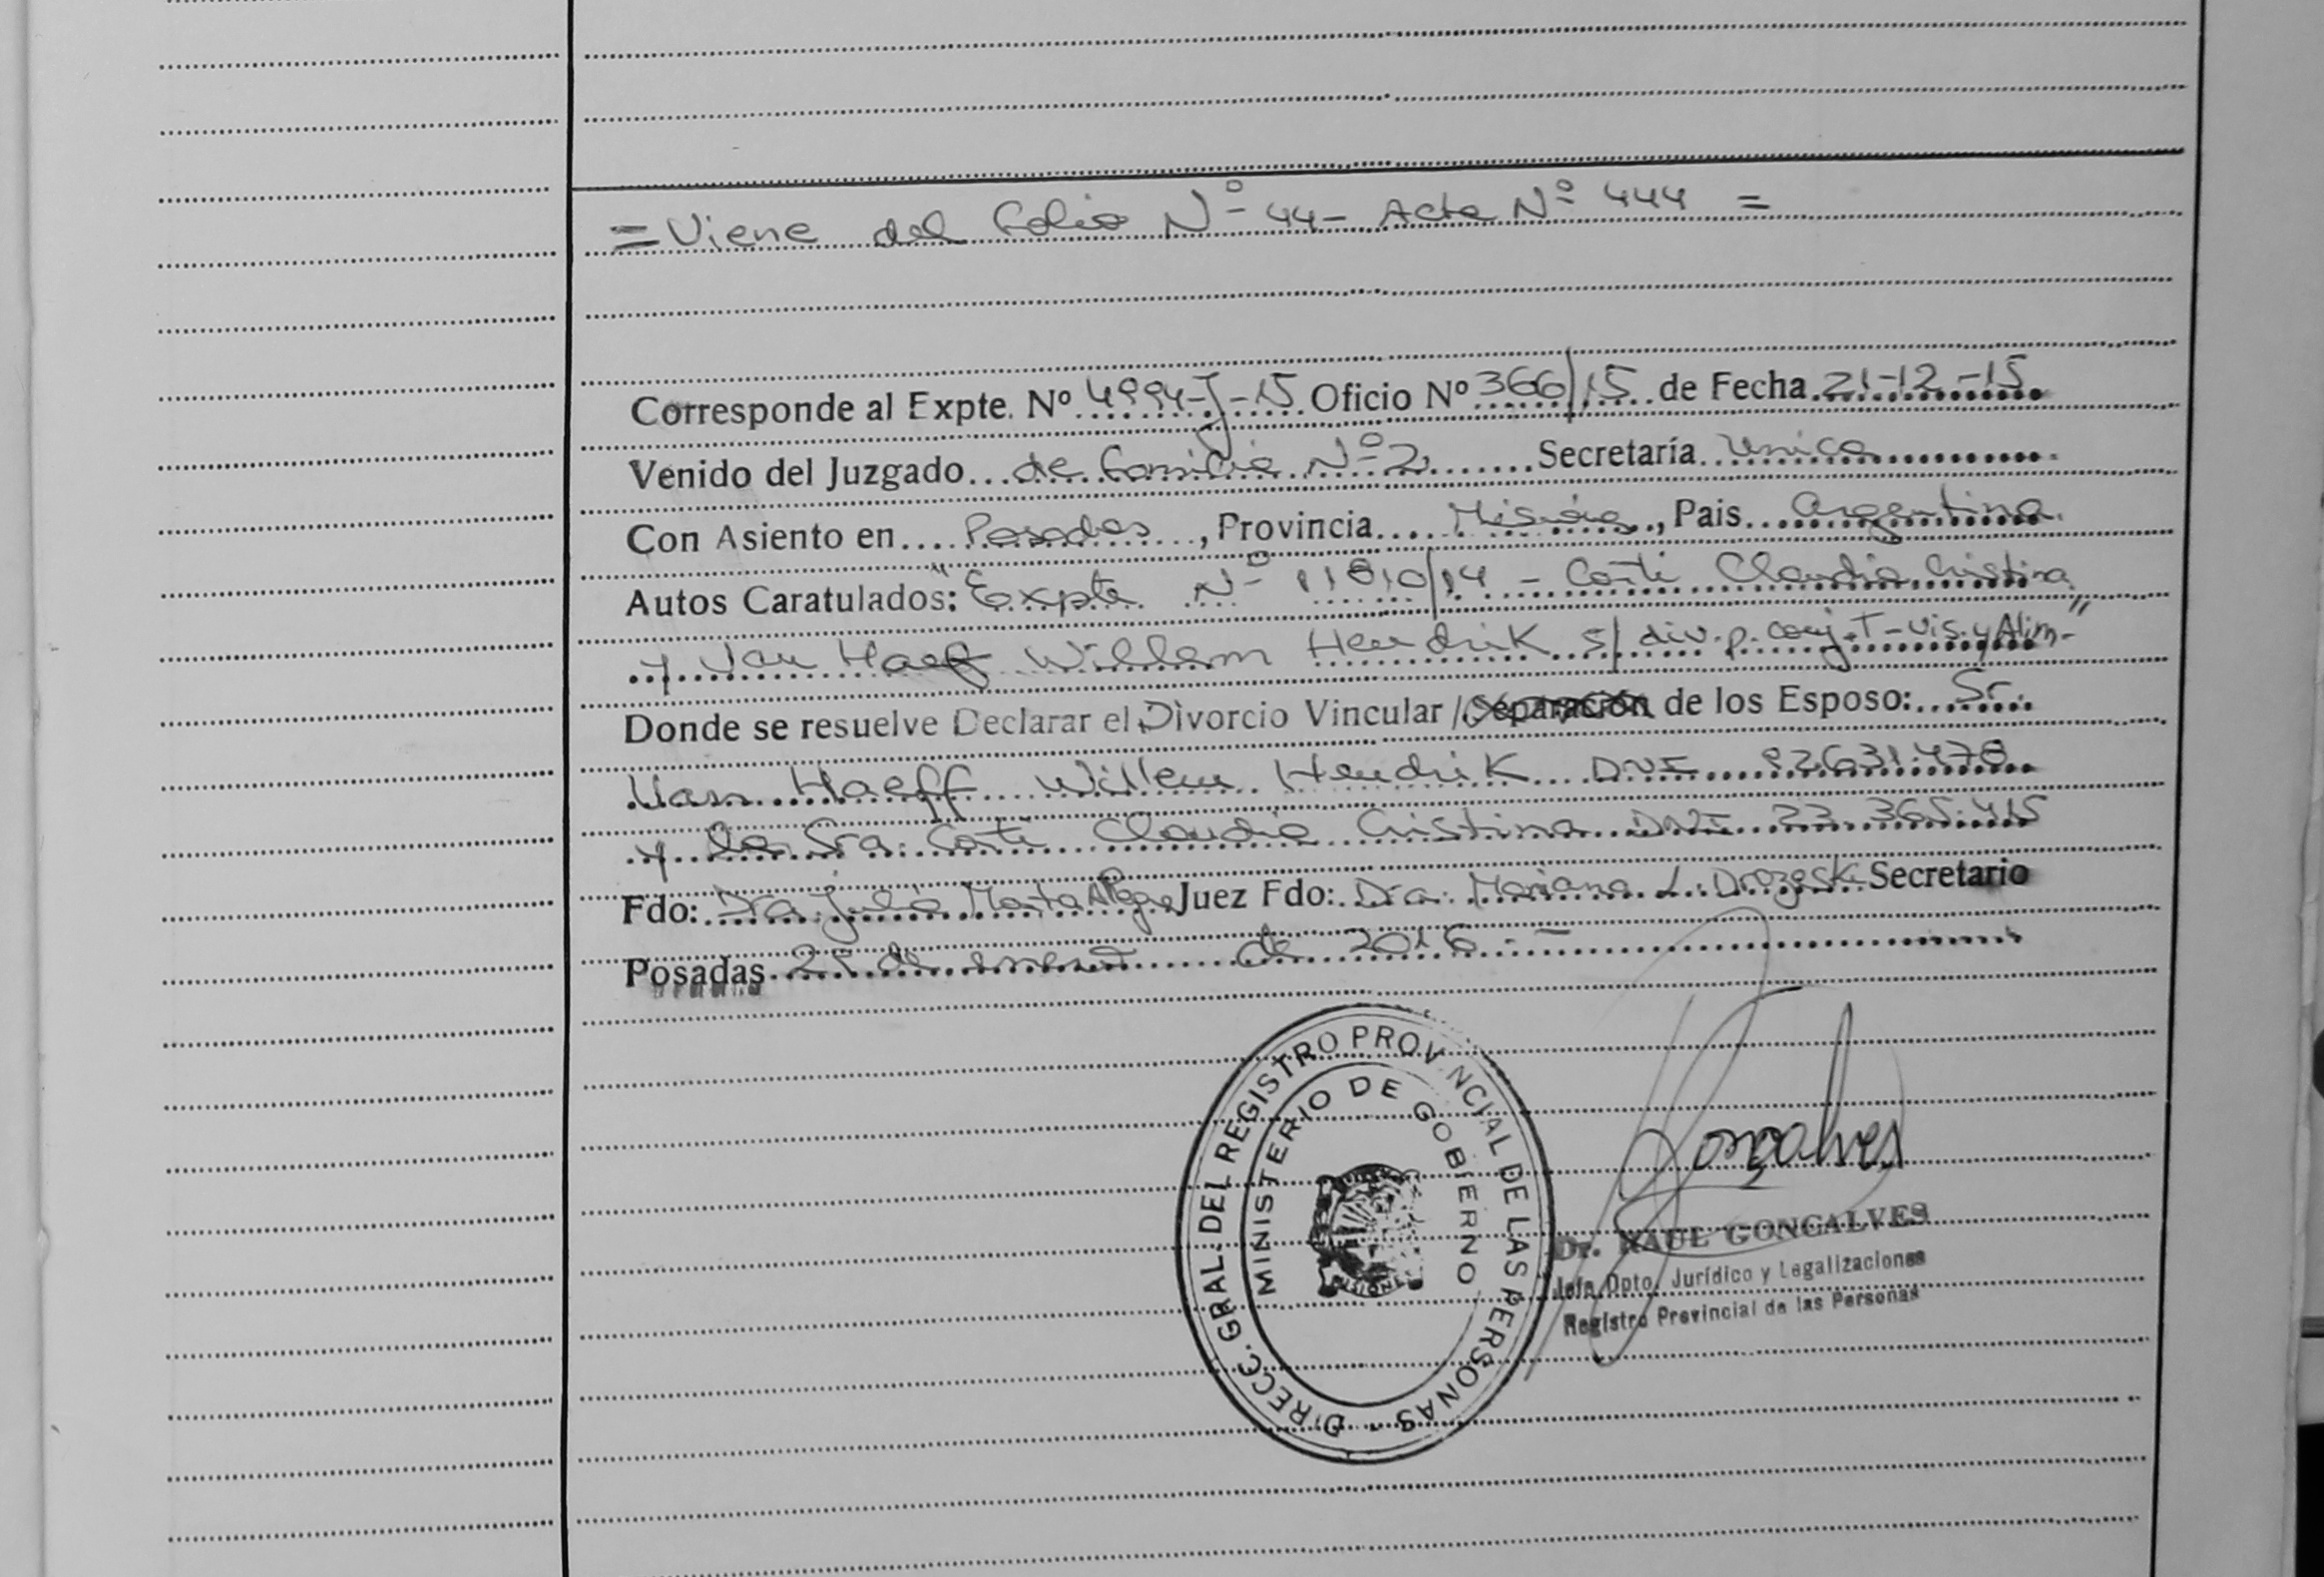 = Viene del folio Nº 44 - Acta Nº 444 =
Corresponde al Expte. Nº 4994-J-15 Oficio Nº 366/15 de Fecha 21-12-15
Venido del Juzgado de familia Nº 2 Secretaría Unica
Con Asiento en Posadas, Provincia Misiones, Pais Argentina.
Autos Caratulados: "Expte Nº 11810/14 - Coiti Claudia Cristina
y Van Haeff Willem Hendrik s/ div. p. conj. T-vis. y Alim-"
Donde se resuelve Declarar el Divorcio Vincular / Separación de los Esposo: Sr.
Van Haeff Willem Hendrik DNI 92631478
y la Sra. Coiti Claudia Cristina DNI 23.365.415
Fdo: Dra Julia Marta Alegre Juez Fdo: Dra. Mariana L. Drozeski Secretario
Posadas de enero de 2016.-
DIRECC. GRAL. DEL REGISTRO PROVINCIAL DE LAS PERSONAS -
MINISTERIO DE GOBIERNO
MISIONES
Gonçalves
Dr. RAUL GONCALVES
Jefe Dpto. Jurídico y Legalizaciones
Registro Provincial de las Personas